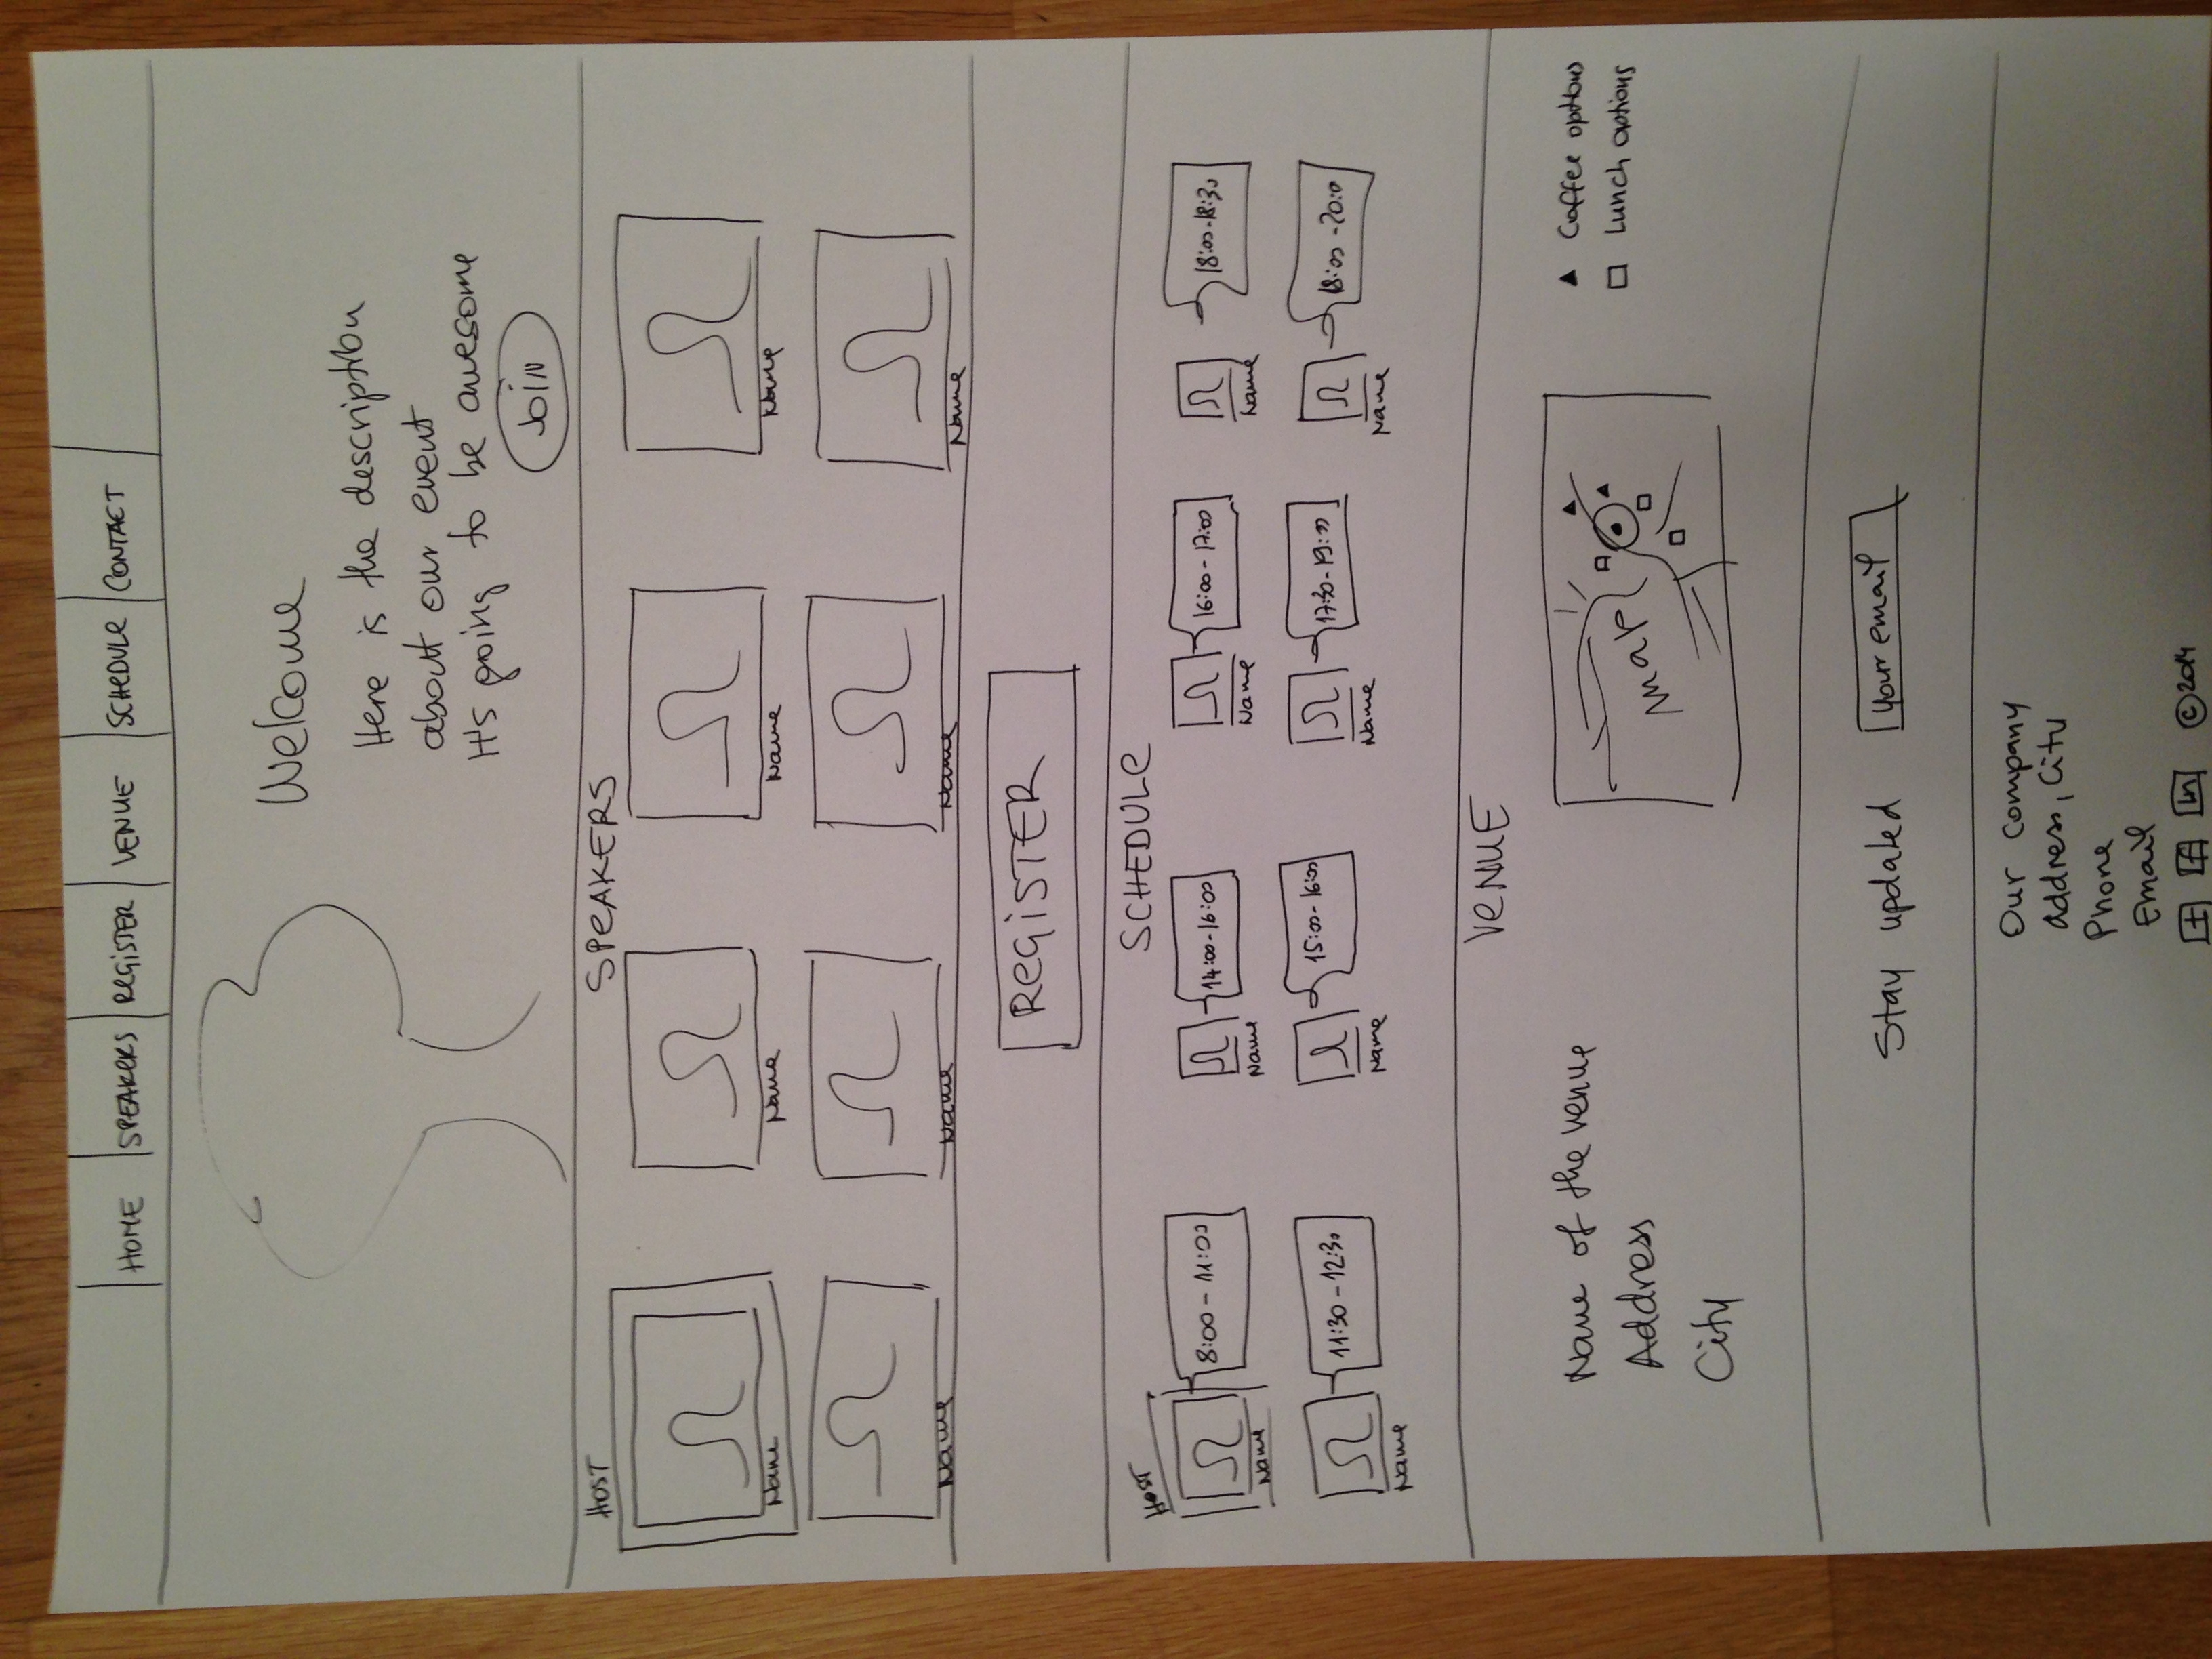 HOME SPEAKERS REGISTER VENUE SCHEDULE CONTACT
Welcome
Here is the description
about our event
It's going to be awesome
JOIN
HOST
SPEAKERS
Name Name Name Name
Name Name Name Name
REGISTER
SCHEDULE
HOST
8:00 - 11:00 14:00-16:00 16:00 - 17:00 18:00-18:30
Name Name Name Name
11:30 - 12:30 15:00-16:00 17:30-19:00 18:00 - 20:0
Name Name Name Name
VENUE
Name of the venue
Address
City
map
Coffee options
Lunch options
Stay updated your email
Our Company
Address, City
Phone
Email
+ f in © 2014